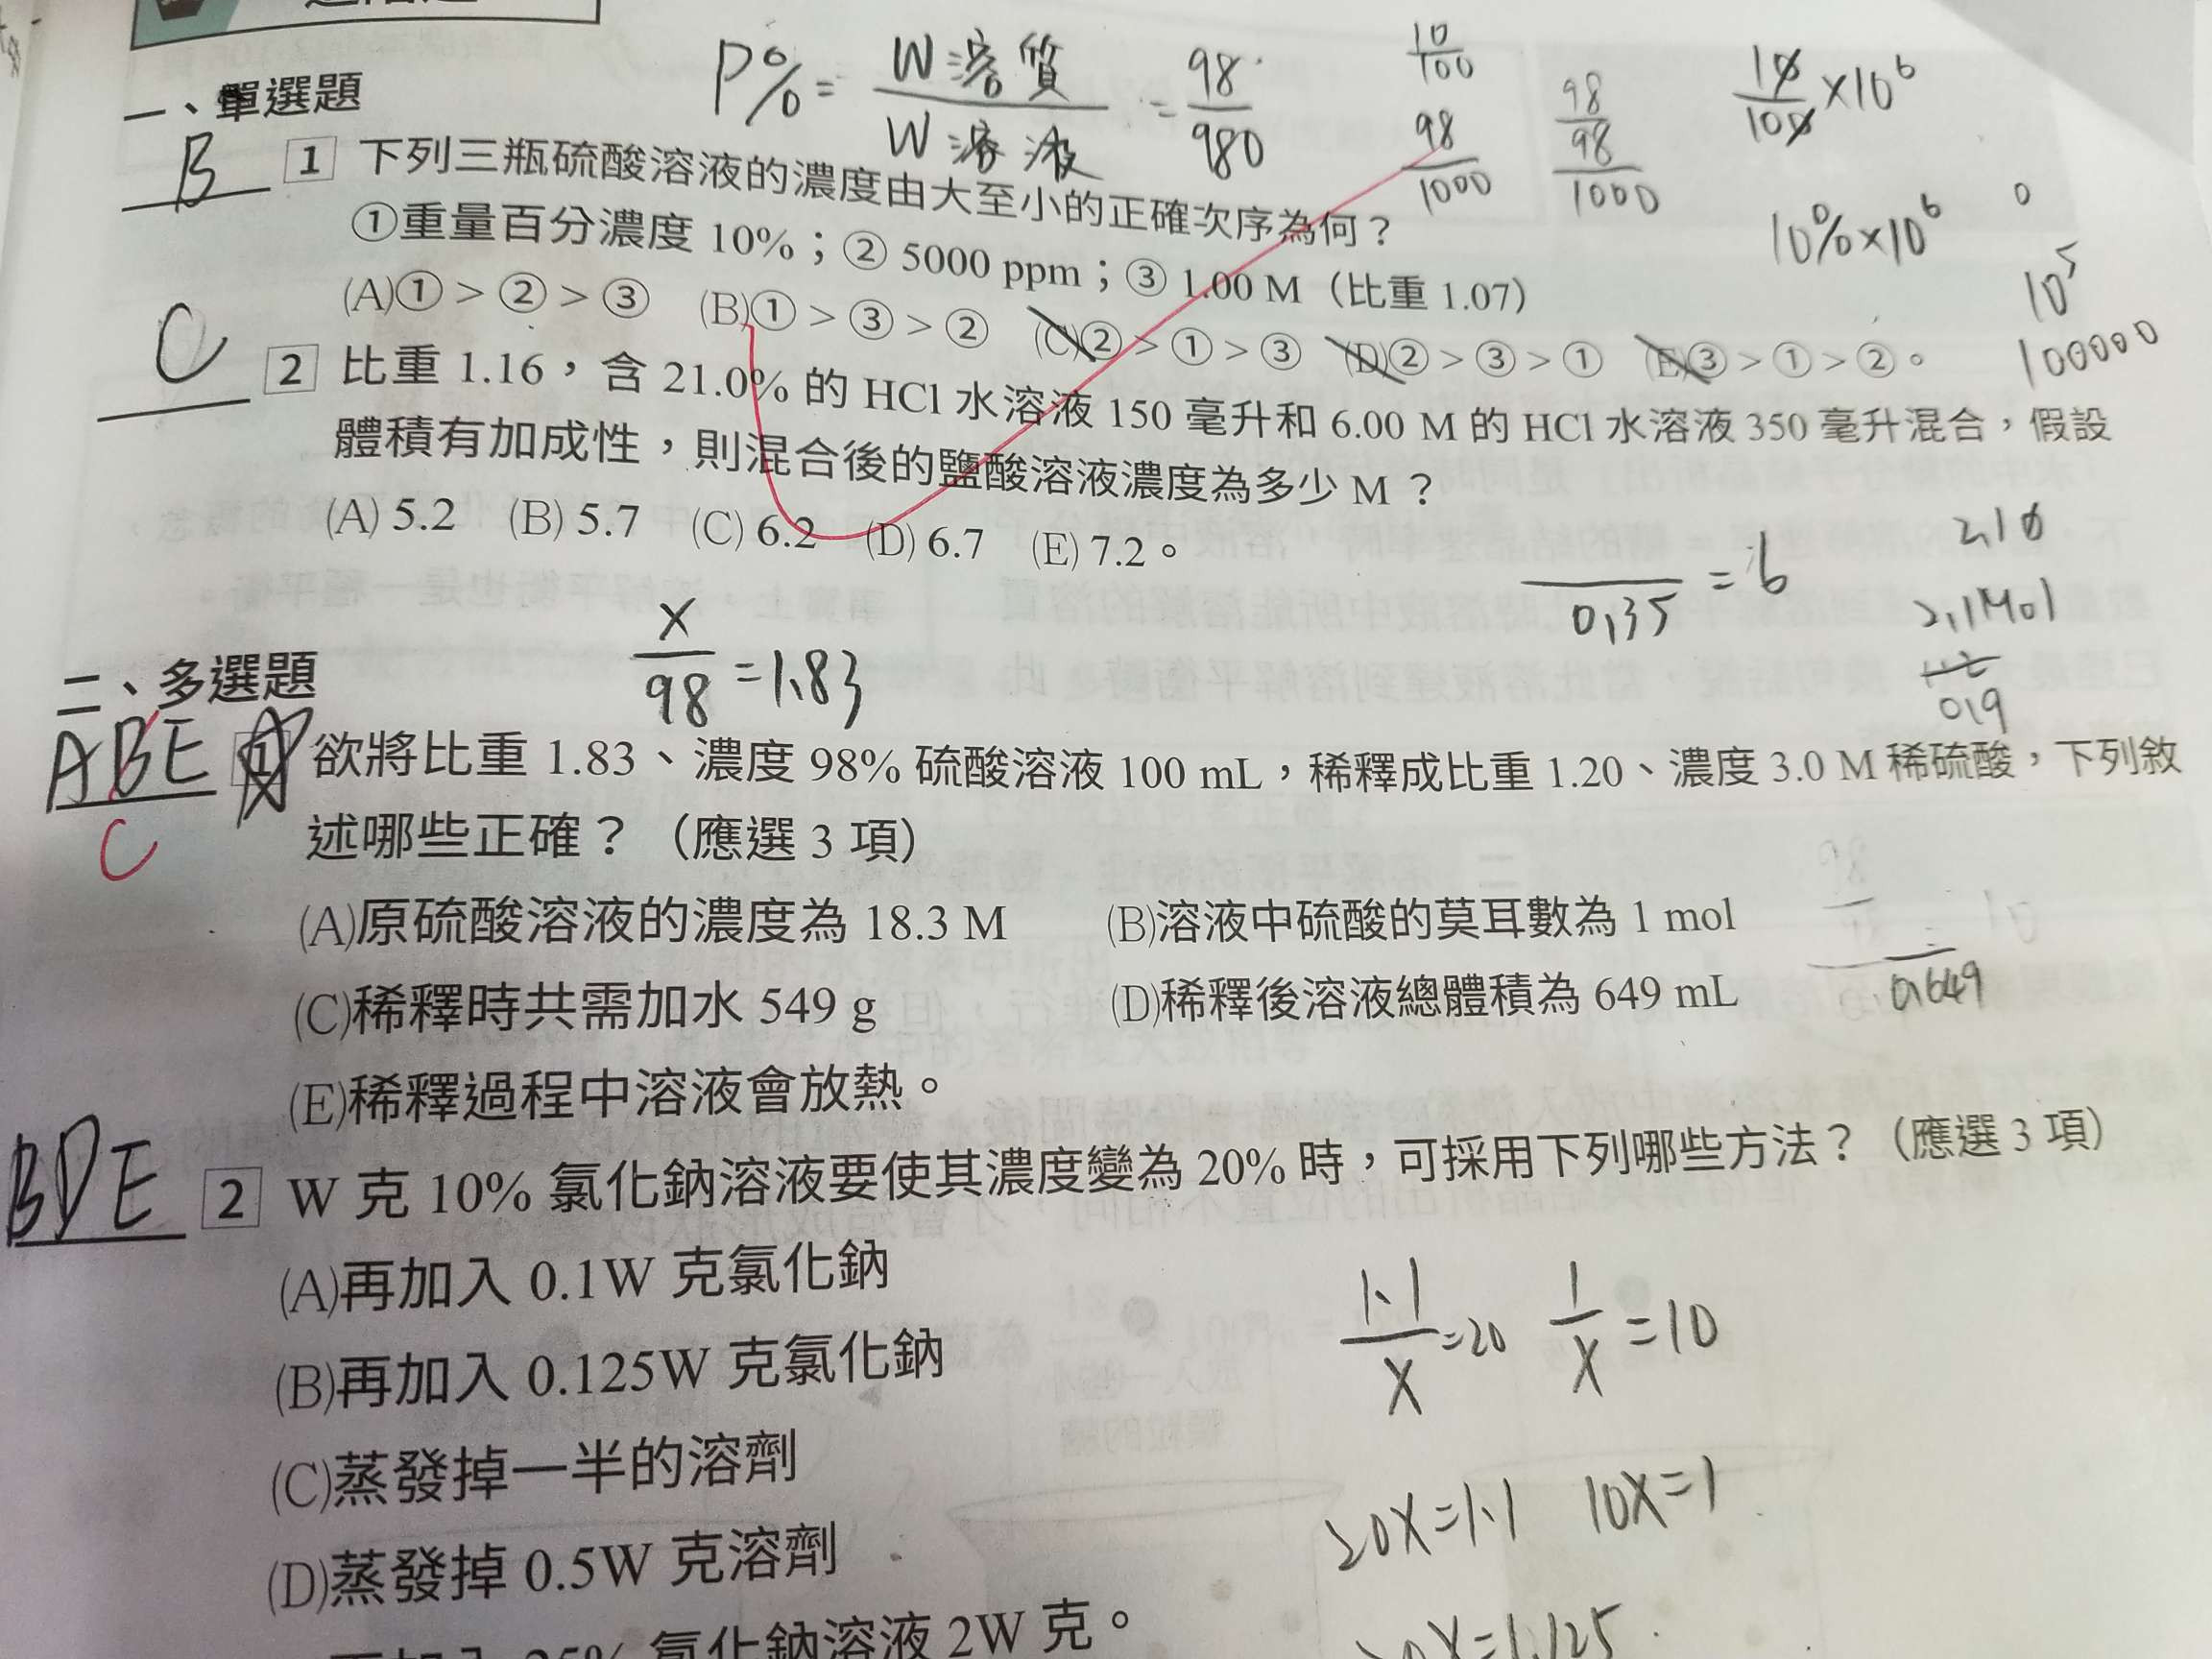 一、單選題
P%= W溶質/W溶液 = 98/980
10/100
98/1000
98/98/1000
10/100 ×10⁶
10%×10⁶
0
10⁵
100000
B
1 下列三瓶硫酸溶液的濃度由大至小的正確次序為何？
①重量百分濃度 10%；② 5000 ppm；③ 1.00 M（比重 1.07）
(A)①＞②＞③ (B)①＞③＞② (C)②＞①＞③ (D)②＞③＞① (E)③＞①＞②。
C
2 比重 1.16，含 21.0% 的 HCl 水溶液 150 毫升和 6.00 M 的 HCl 水溶液 350 毫升混合，假設
體積有加成性，則混合後的鹽酸溶液濃度為多少 M？
(A) 5.2 (B) 5.7 (C) 6.2 (D) 6.7 (E) 7.2。
/0.35 = 6
2.10
2.1Mol
0.9
X/98 =1.83
二、多選題
ABE
C
1 欲將比重 1.83、濃度 98% 硫酸溶液 100 mL，稀釋成比重 1.20、濃度 3.0 M 稀硫酸，下列敘
述哪些正確？（應選 3 項）
(A)原硫酸溶液的濃度為 18.3 M (B)溶液中硫酸的莫耳數為 1 mol
(C)稀釋時共需加水 549 g (D)稀釋後溶液總體積為 649 mL
0.649
(E)稀釋過程中溶液會放熱。
BDE
2 W 克 10% 氯化鈉溶液要使其濃度變為 20% 時，可採用下列哪些方法？（應選 3 項）
(A)再加入 0.1W 克氯化鈉
(B)再加入 0.125W 克氯化鈉
(C)蒸發掉一半的溶劑
(D)蒸發掉 0.5W 克溶劑
再加入 25% 氯化鈉溶液 2W 克。
1.1/X =20 1/X =10
20X=1.1 10X=1
X=1.125